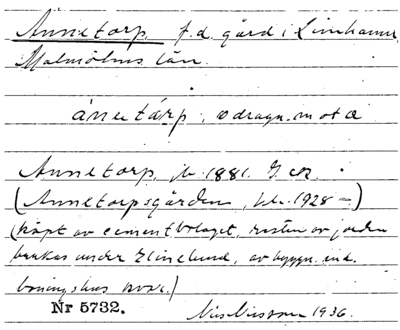 Annetorp f.d. gård i Limhamn,
Malmöhus län.
ånetárp, dragn. mot a
Annetorp, jb. 1881.
(Annetorpsgården, 1928 –)
(köpt av cementbolaget, resten av jorden
brukas under Elinelund, av byggn. end.
boningshus kvar.)
Nr 5732. Nils Nilsson 1936.